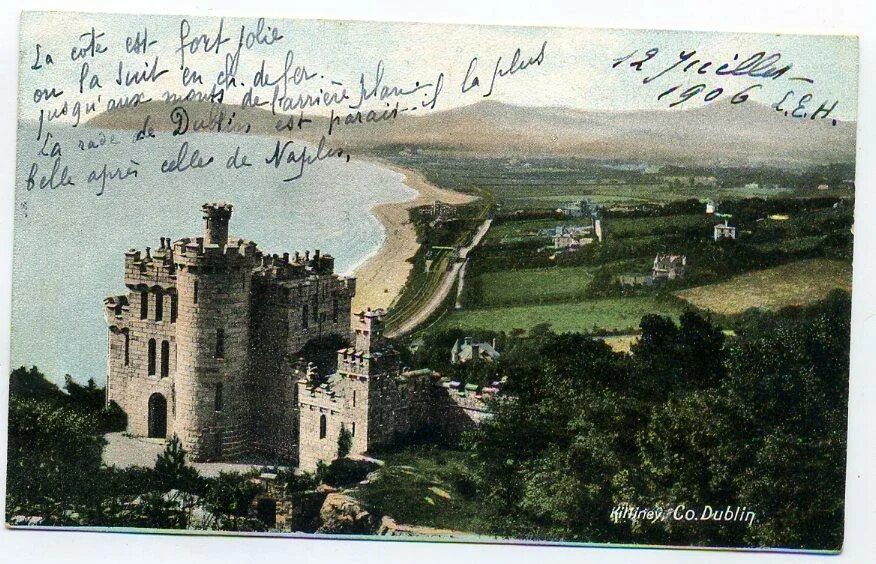 La côte est fort jolie
on la suit en ch. de fer.
jusqu'aux monts de l'arrière plan.
La rade de Dublin est parait-il la plus
belle après celles de Naples,
12 Juillet
1906 L.E.H.
Killiney, Co. Dublin